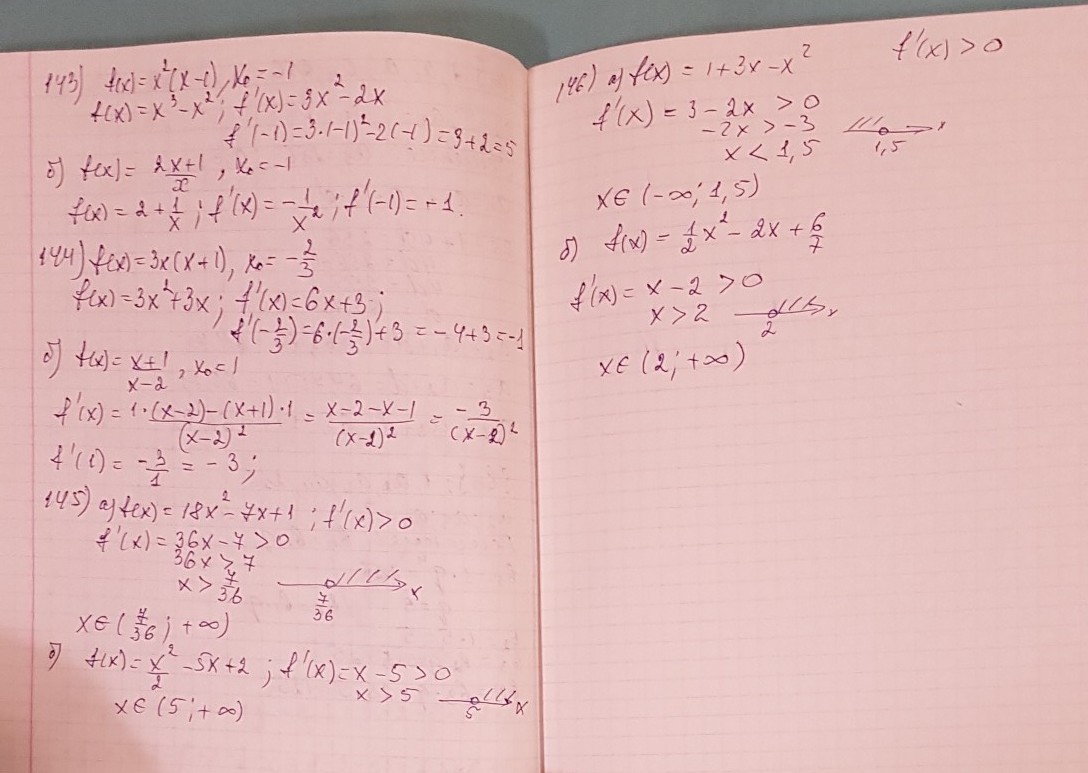 143) f(x) = x²(x-1), x₀ = -1
f(x) = x³ - x²; f'(x) = 3x² - 2x
f'(-1) = 3·(-1)² - 2(-1) = 3+2=5
б) f(x) = (2x+1)/x, x₀ = -1
f(x) = 2 + 1/x; f'(x) = -1/x²; f'(-1) = -1.
144) f(x) = 3x(x+1), x₀ = -2/3
f(x) = 3x²+3x; f'(x) = 6x+3;
f'(-2/3) = 6·(-2/3)+3 = -4+3 = -1
б) f(x) = (x+1)/(x-2), x₀ = 1
f'(x) = (1·(x-2)-(x+1)·1)/(x-2)² = (x-2-x-1)/(x-2)² = -3/(x-2)²
f'(1) = -3/1 = -3;
145) а) f(x) = 18x² - 7x+1; f'(x) > 0
f'(x) = 36x - 7 > 0
36x > 7
x > 7/36
7/36 x
x∈(7/36; +∞)
б) f(x) = x²/2 - 5x+2; f'(x) = x - 5 > 0
x > 5
5 x
x∈(5; +∞)
146) а) f(x) = 1+3x-x² f'(x) > 0
f'(x) = 3 - 2x > 0
-2x > -3
x < 1,5
1,5 x
x∈(-∞; 1,5)
б) f(x) = 1/2 x² - 2x + 6/7
f'(x) = x - 2 > 0
x > 2
2 x
x∈(2; +∞)